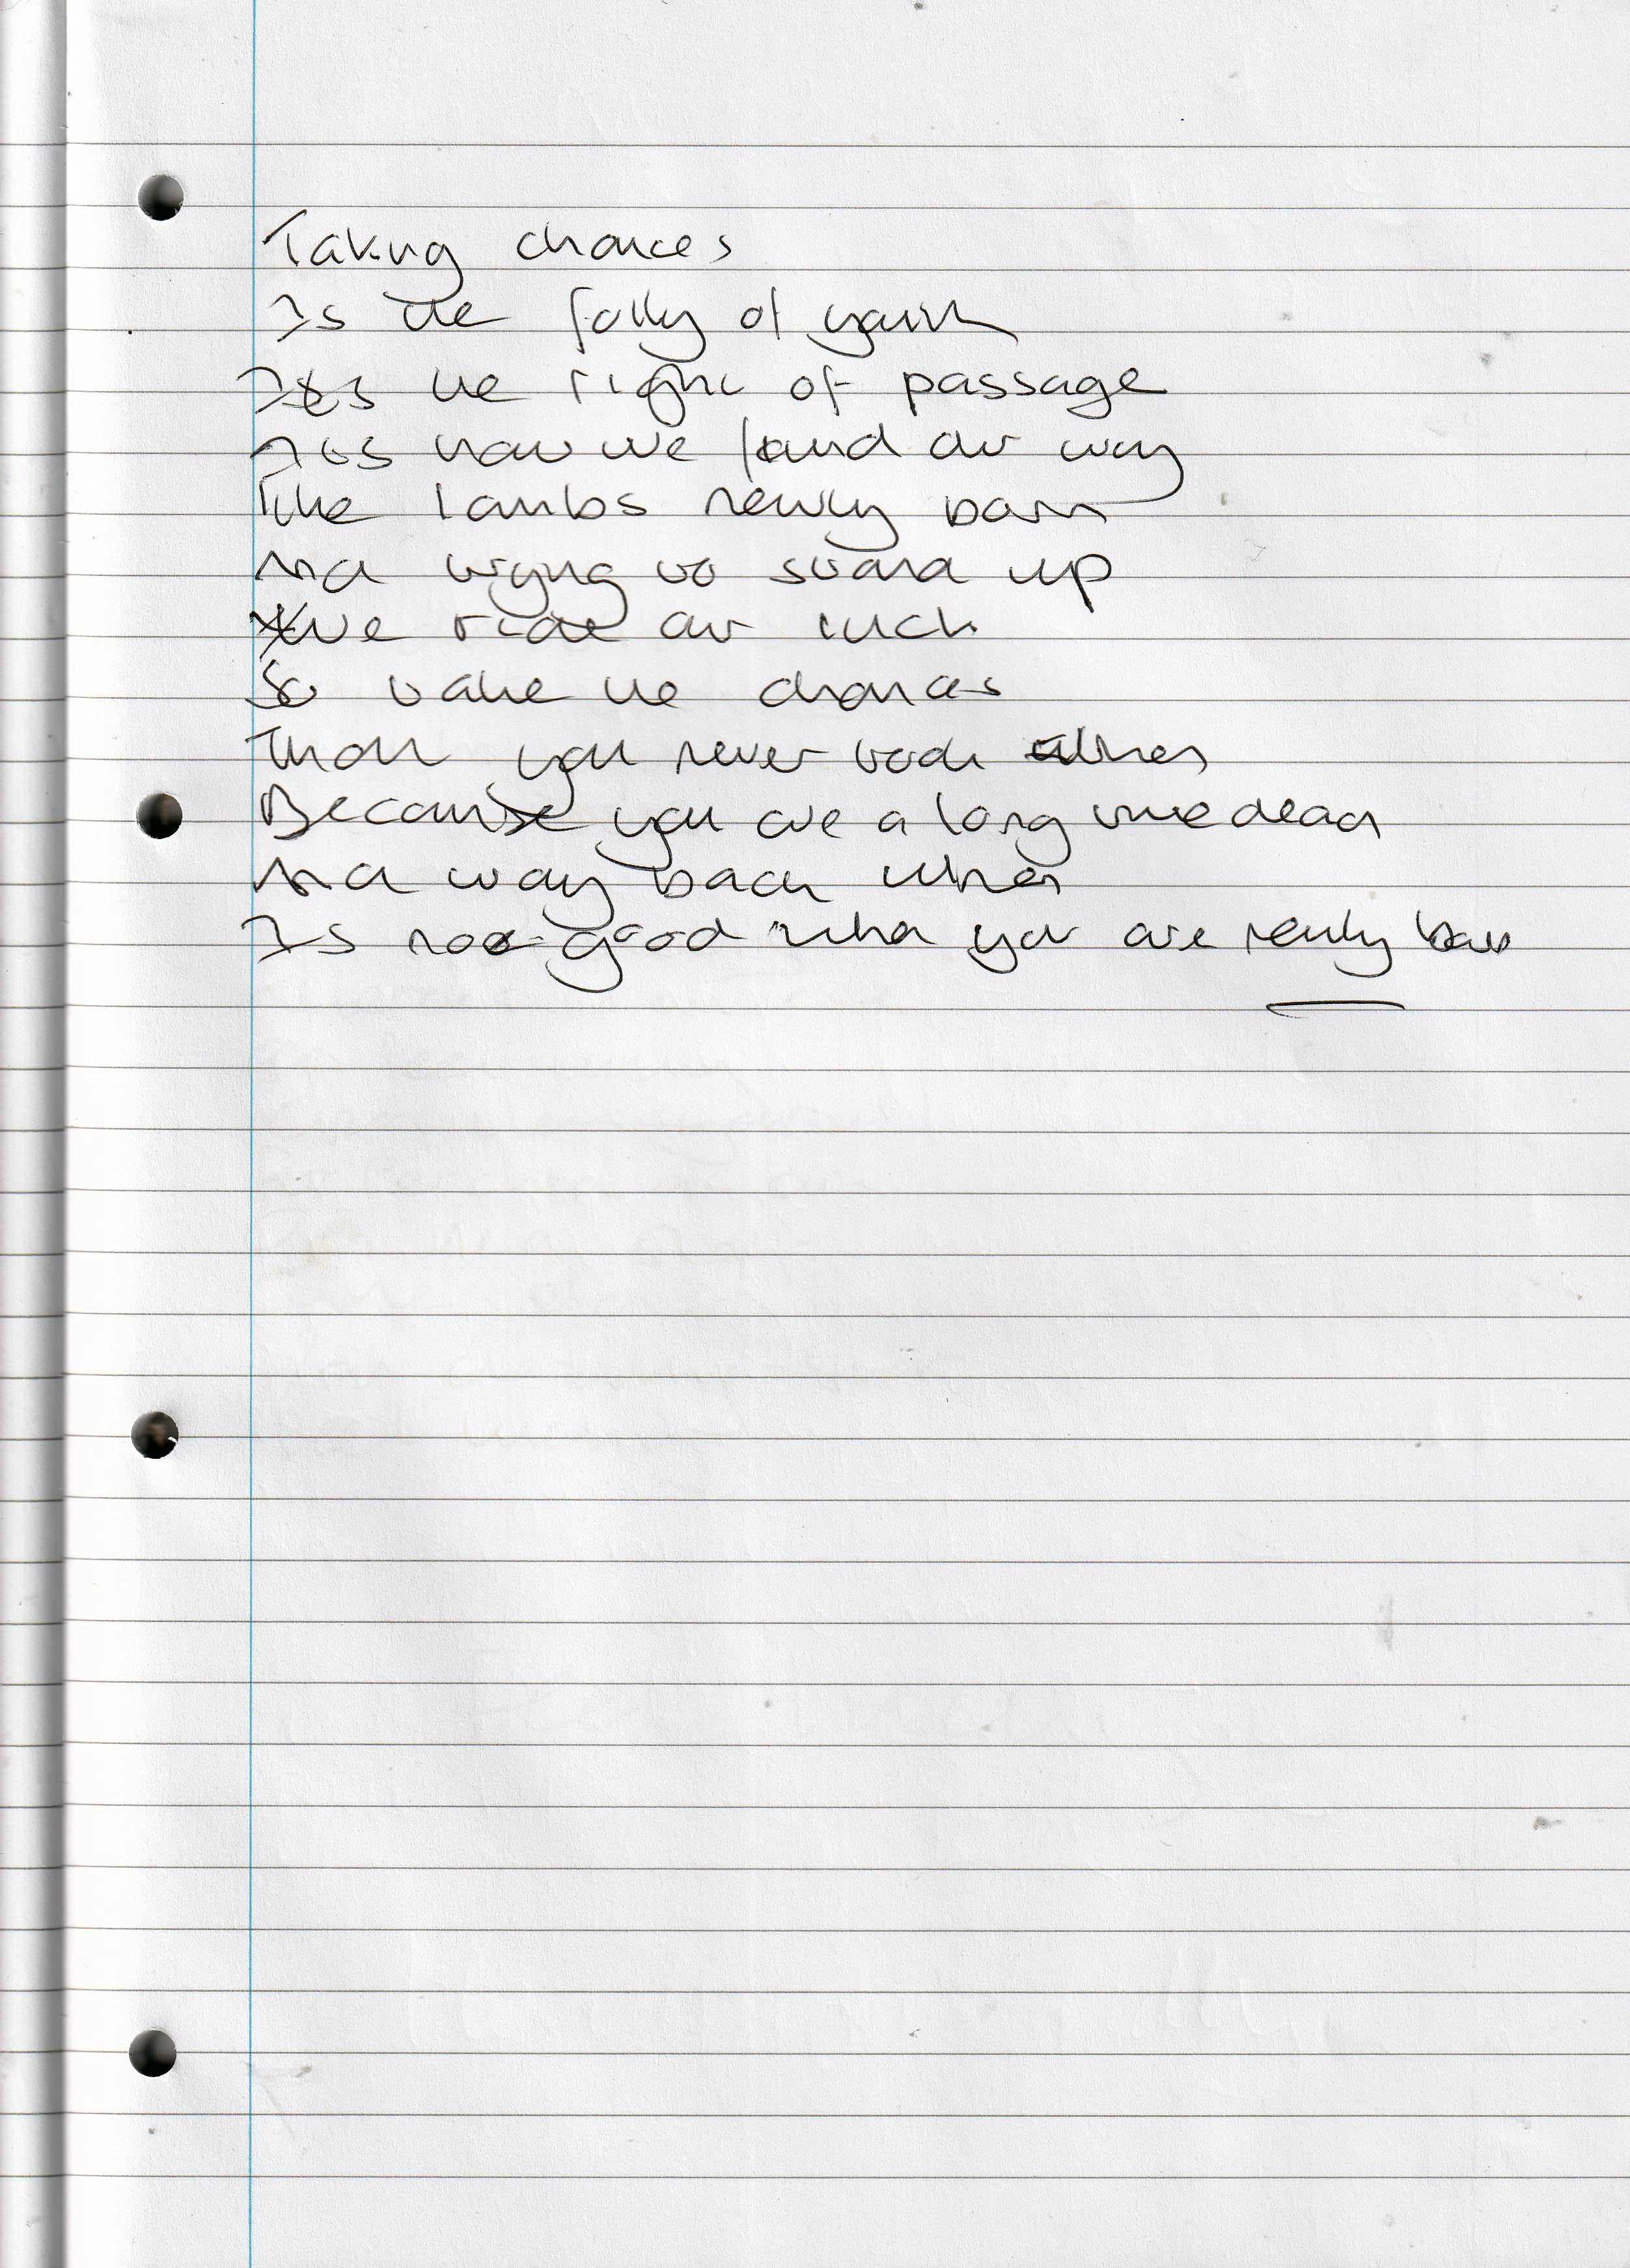 Taking chances
Is the folly of youth
Its the right of passage
Its how we found our way
like lambs newly born
And trying to stand up
We ride our luck
So take the chances
That you never took when
Because you are a long time dead
And way back when
Is not good when you are newly born